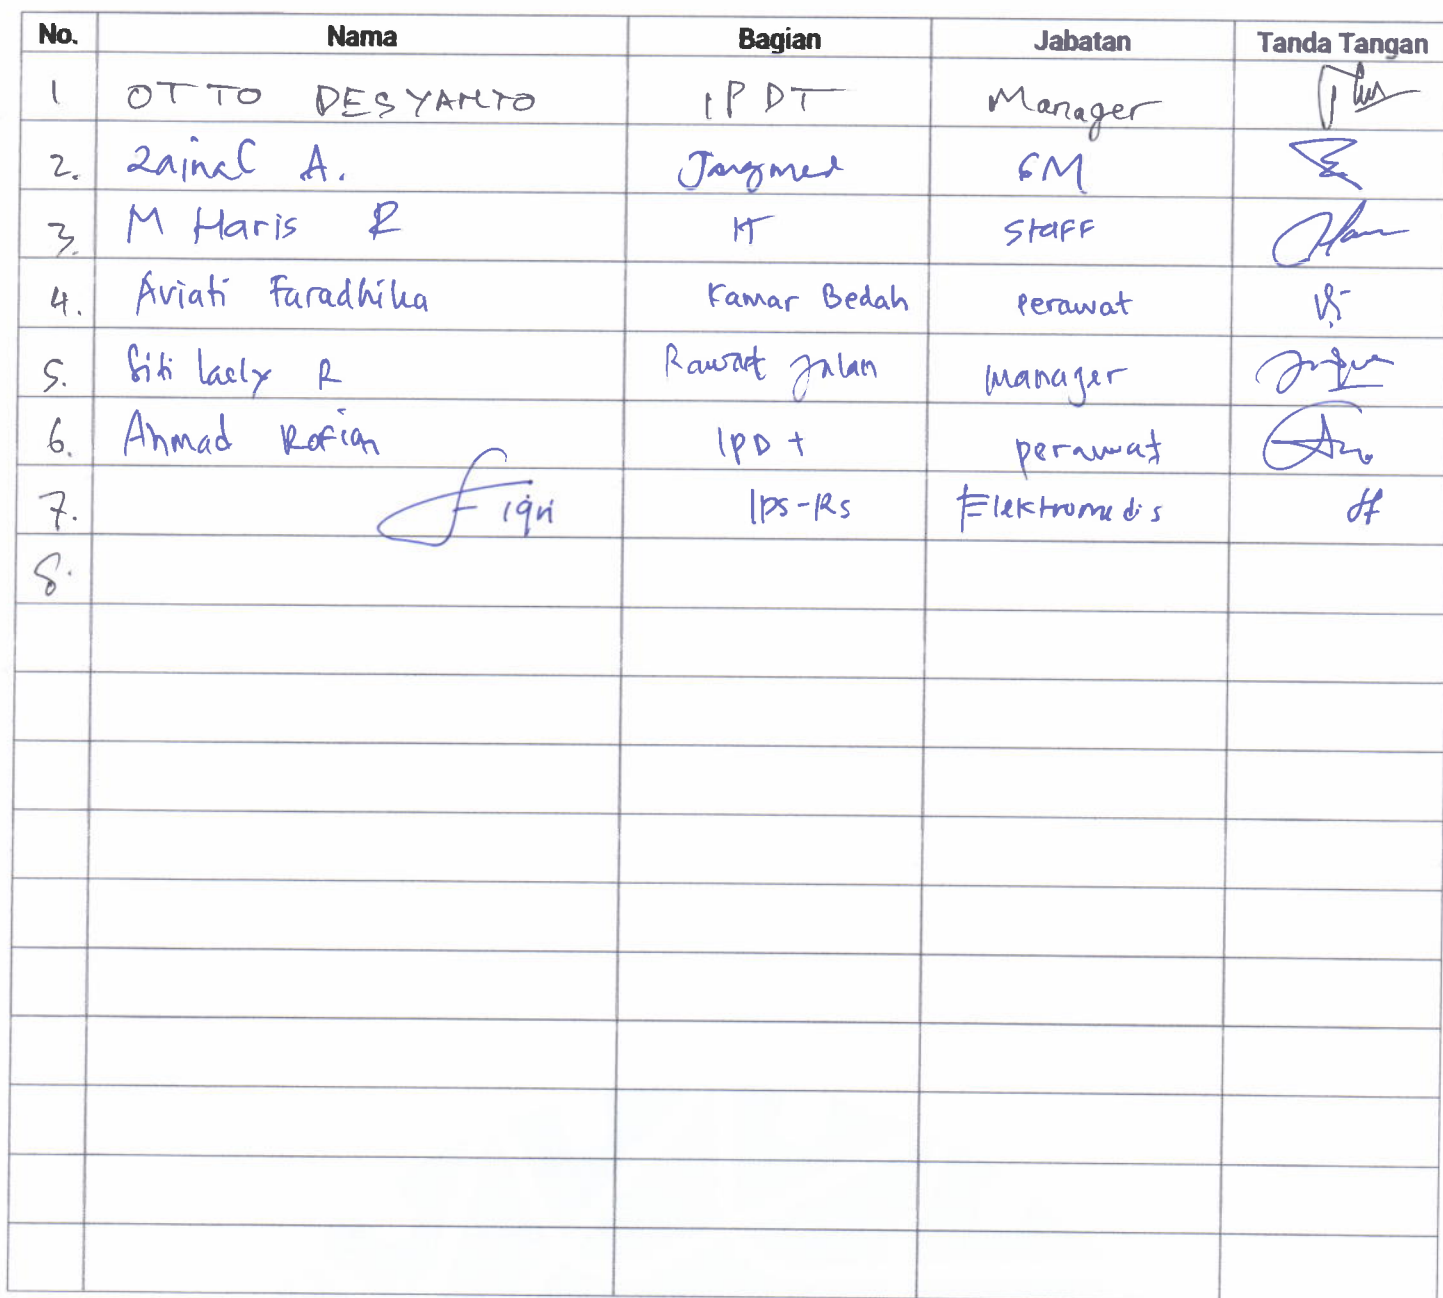 No. Nama Bagian Jabatan Tanda Tangan
1 OTTO DESYANTO IPDT Manager
2. Zainal A. Jangmed GM
3. M Haris R IT Staff
4. Aviati Faradhika Kamar Bedah perawat
5. Siti Laely R Rawat Jalan Manajer
6. Ahmad Rofian IPDT perawat
7. Fiqri IPS-RS Elektromedis
8.